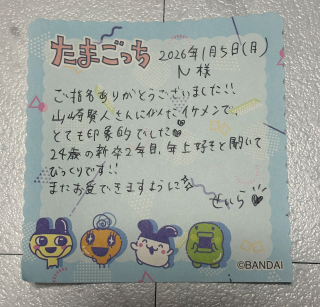 たまごっち
2026年1月5日(月)
N 様
ご指名ありがとうございました!!
山﨑賢人さんに似たイケメンで、
とても印象的でした♥
24歳の新卒2年目、年上好きと聞いて
びっくりです!!
またお会いできますように✨
せいら♥
©BANDAI